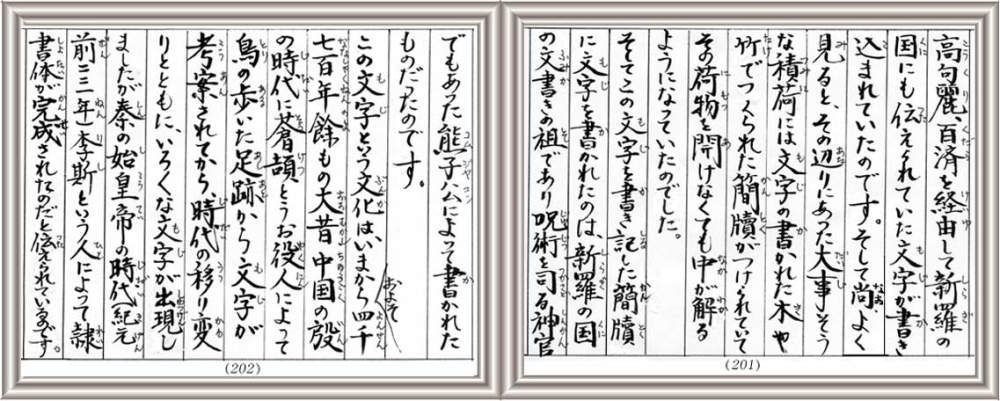 高句麗、百済を経由して新羅の
国にも伝えられていた文字が書き
込まれていたのです。そして尚、よく
見ると、その辺りにあった大事そう
な積荷には文字の書かれた木や
竹でつくられた簡牘がつけられていて
その荷物を開けなくても中が解る
ようになっていたのでした。
そしてこの文字を書き記した簡牘
に文字を書かれたのは、新羅の国
の文書きの祖であり呪術を司る神官
(201)
でもあった熊子公によって書かれた
ものだったのです。
およそ
この文字という文化は、いまから四千
七百年餘もの大昔中国の殷
の時代に蒼頡とうお役人によって
鳥の歩いた足跡から文字が
考案されてから、時代の移り変
りとともに、いろ〱な文字が出現し
ましたが秦の始皇帝の時代紀元
前三年李斯という人によって隷
書体が完成されたのだと伝えられています。
(202)